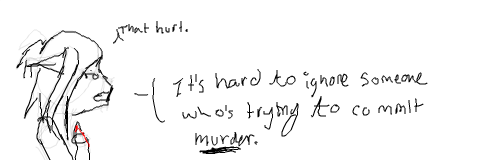 That hurt.
It's hard to ignore someone
who's trying to commit
murder.